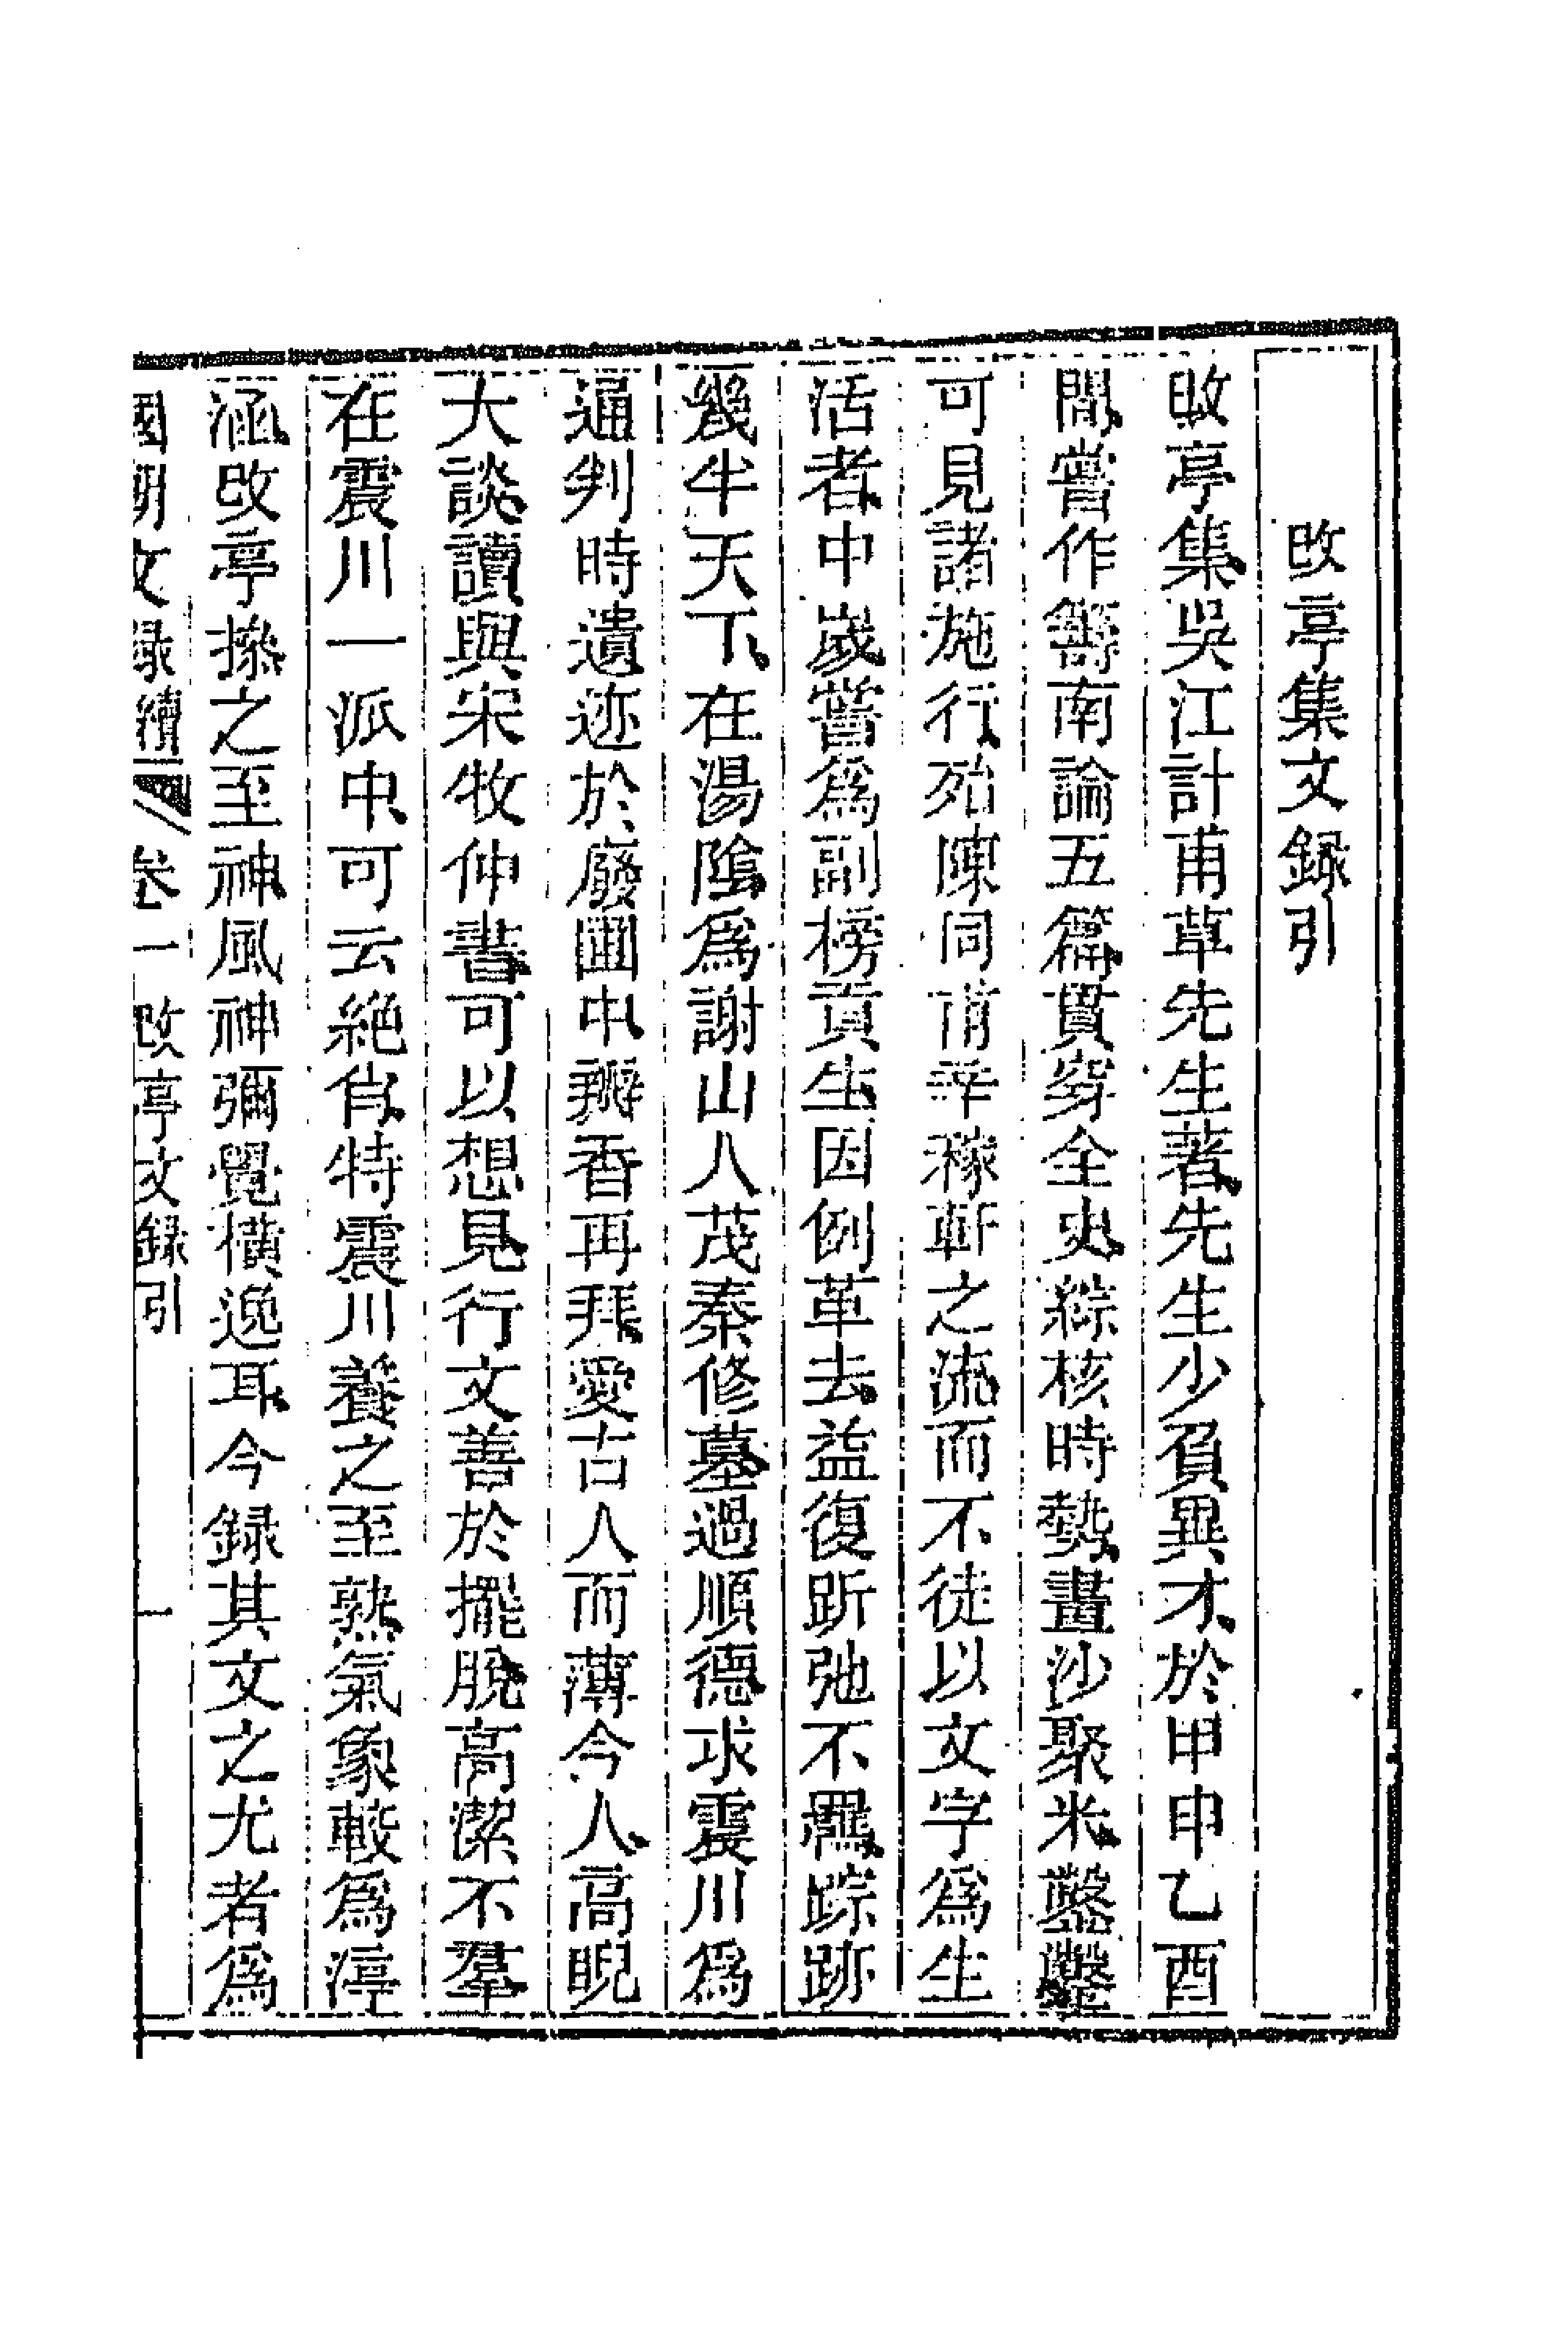 改亭集文録引
改亭集吳江計甫草先生著先生少負異才於甲申乙酉
間嘗作籌南論五篇貫穿全史綜核時勢畫沙聚米鑿鑿
可見諸施行殆陳同甫辛稼軒之流而不徒以文字爲生
活者中歲嘗爲副榜貢生因例革去益復跅弛不羈踪跡
幾半天下在湯陰爲謝山人茂秦修墓過順德求震川爲
通判時遺迹於廢圃中瓣香再拜愛古人而薄今人高睨
大談讀與宋牧仲書可以想見行文善於擺脫高潔不羣
在震川一派中可云絶肖特震川養之至熟氣象較爲渟
涵改亭摻之至神風神彌覺橫逸耳今録其文之尤者爲
國朝文録續 卷一 改亭文録引 一